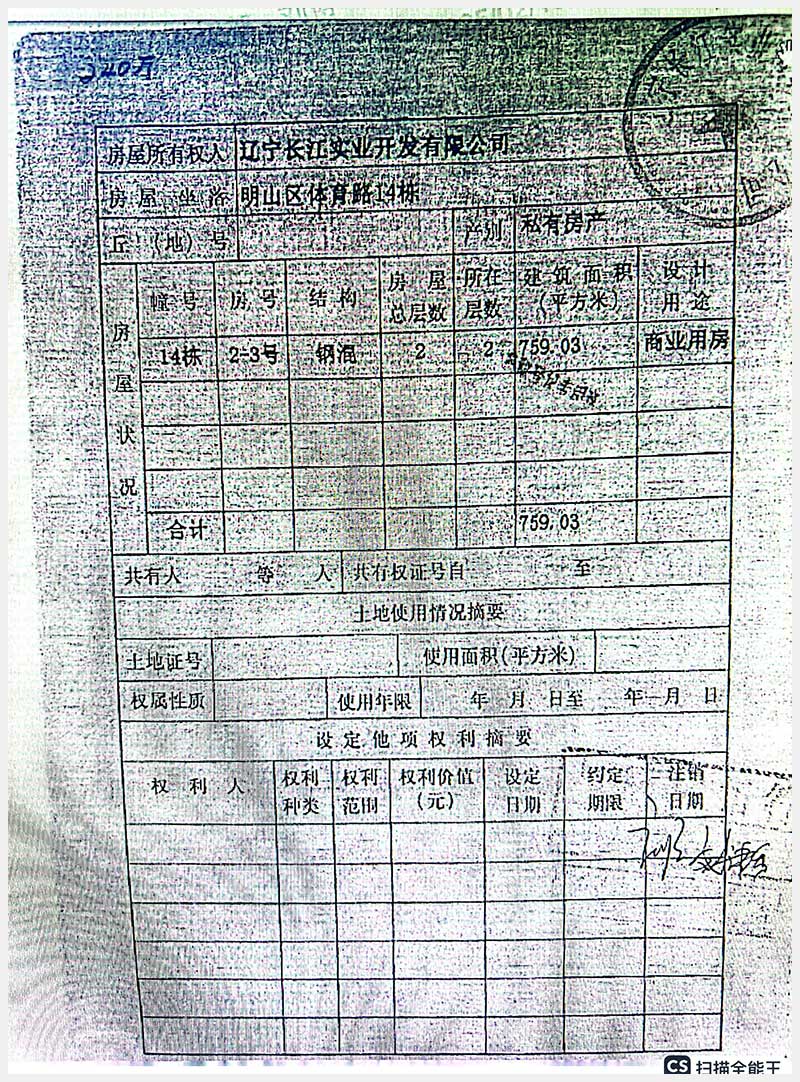 240万
房屋所有权人 辽宁长江实业开发有限公司
房屋坐落 明山区体育路14栋
丘(地)号 产别 私有房产
房屋状况
幢号 房号 结构 房屋总层数 所在层数 建筑面积(平方米) 设计用途
14栋 2-3号 钢混 2 2 759.03 商业用房
合计 759.03
共有人 等 人 共有权证号自 至
土地使用情况摘要
土地证号 使用面积(平方米)
权属性质 使用年限 年 月 日至 年 月 日
设定他项权利摘要
权利人 权利种类 权利范围 权利价值(元) 设定日期 约定期限 注销日期
CS 扫描全能王